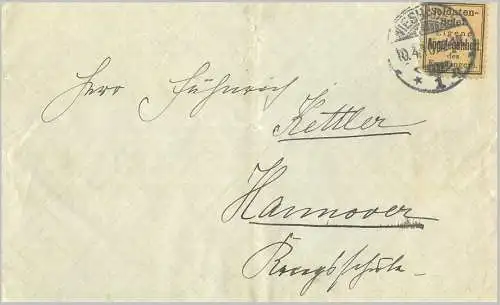 Soldaten-
Brief.
Eigene
Angelegenheit
des
Empfängers
10.4
1
Herr Fühnrich
Kettler
Hannover
Kriegsschule